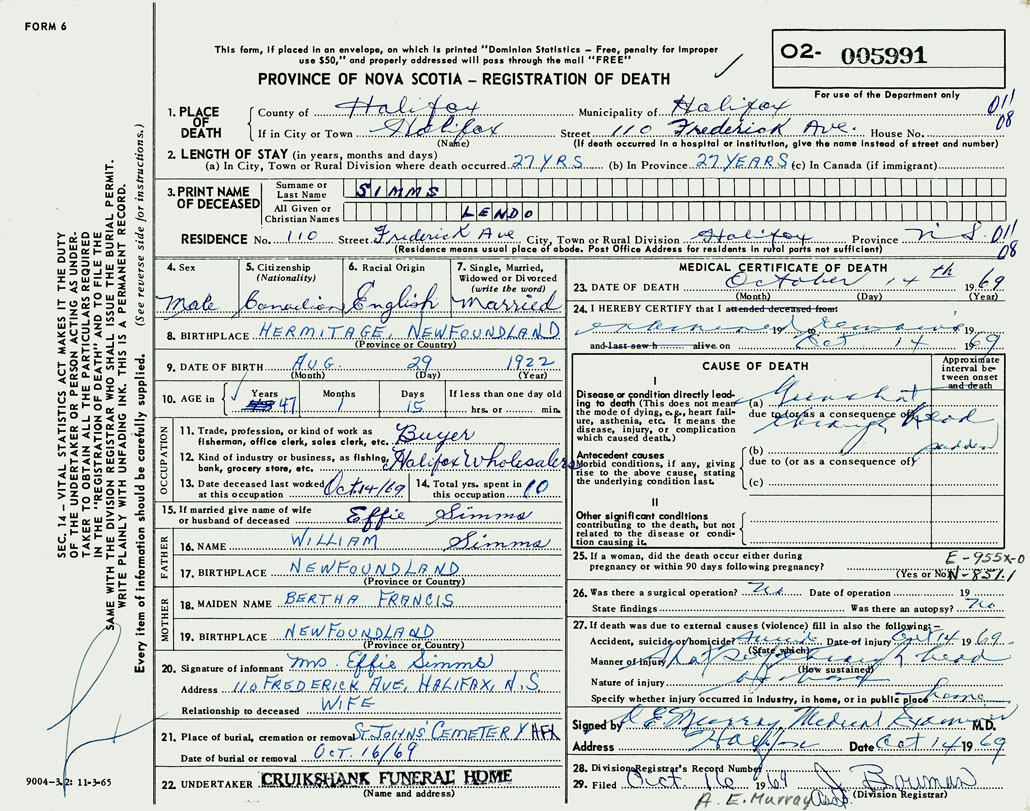 FORM 6
This form, if placed in an envelope, on which is printed "Dominion Statistics – Free, penalty for improper
use $50," and properly addressed will pass through the mail "FREE"
PROVINCE OF NOVA SCOTIA – REGISTRATION OF DEATH
O2- 005991
For use of the Department only
1. PLACE OF DEATH
County of Halifax Municipality of Halifax 011
If in City or Town Halifax Street 110 Frederick Ave. House No. 08
(Name) (If death occurred in a hospital or institution, give the name instead of street and number)
2. LENGTH OF STAY (in years, months and days)
(a) In City, Town or Rural Division where death occurred 27 YRS (b) In Province 27 YEARS (c) In Canada (if immigrant)
3. PRINT NAME OF DECEASED
Surname or Last Name SIMMS
All Given or Christian Names LENDO
RESIDENCE No. 110 Street Frederick Ave City, Town or Rural Division Halifax Province N.S. 011
(Residence means usual place of abode. Post Office Address for residents in rural parts not sufficient) 08
4. Sex
Male
5. Citizenship (Nationality)
Canadian
6. Racial Origin
English
7. Single, Married, Widowed or Divorced (write the word)
Married
8. BIRTHPLACE HERMITAGE, NEWFOUNDLAND
(Province or Country)
9. DATE OF BIRTH AUG. 29 1922
(Month) (Day) (Year)
10. AGE in Years Months Days If less than one day old
47 1 15 hrs. or min.
OCCUPATION
11. Trade, profession, or kind of work as
fisherman, office clerk, sales clerk, etc. Buyer
12. Kind of industry or business, as fishing,
bank, grocery store, etc. Halifax Wholesalers
13. Date deceased last worked
at this occupation Oct 14/69
14. Total yrs. spent in
this occupation 10
15. If married give name of wife
or husband of deceased Effie Simms
FATHER
16. NAME WILLIAM Simms
17. BIRTHPLACE NEWFOUNDLAND
(Province or Country)
MOTHER
18. MAIDEN NAME BERTHA FRANCIS
19. BIRTHPLACE NEWFOUNDLAND
(Province or Country)
20. Signature of informant Mrs Effie Simms
Address 110 FREDERICK AVE, HALIFAX, N.S
Relationship to deceased WIFE
21. Place of burial, cremation or removal ST JOHNS CEMETERY HFX
Date of burial or removal OCT. 16/69
22. UNDERTAKER CRUIKSHANK FUNERAL HOME
(Name and address)
MEDICAL CERTIFICATE OF DEATH
23. DATE OF DEATH October 14th 1969
(Month) (Day) (Year)
24. I HEREBY CERTIFY that I attended deceased from:
examined 19 to remains 19
and last saw h alive on Oct 14 1969
CAUSE OF DEATH
Approximate interval between onset and death
I
Disease or condition directly leading to death (This does not mean the mode of dying, e.g., heart failure, asthenia, etc. It means the disease, injury, or complication which caused death.)
(a) Gunshot
due to (or as a consequence of)
through head
sudden
Antecedent causes
Morbid conditions, if any, giving rise to the above cause, stating the underlying condition last.
(b)
due to (or as a consequence of)
(c)
II
Other significant conditions
contributing to the death, but not
related to the disease or condition causing it.
25. If a woman, did the death occur either during
pregnancy or within 90 days following pregnancy?
(Yes or No)
E-955X-0
N-851.1
26. Was there a surgical operation? No Date of operation 19
State findings Was there an autopsy? No
27. If death was due to external causes (violence) fill in also the following:–
Accident, suicide or homicide? Suicide Date of injury Oct 14 1969
(State which)
Manner of injury Shot self through head
(How sustained)
Nature of injury
Specify whether injury occurred in industry, in home, or in public place home
Signed by A E Murray Medical Examiner M.D.
Address Halifax Date Oct 14 1969
28. Division Registrar's Record Number
29. Filed Oct. 16 1969 J Bowman
(Division Registrar)
A. E. Murray
SEC. 14 – VITAL STATISTICS ACT MAKES IT THE DUTY
OF THE UNDERTAKER OR PERSON ACTING AS UNDER-
TAKER TO OBTAIN ALL THE PARTICULARS REQUIRED
IN THE "REGISTRATION OF DEATH" AND TO FILE THE
SAME WITH THE DIVISION REGISTRAR WHO SHALL ISSUE THE BURIAL PERMIT.
WRITE PLAINLY WITH UNFADING INK. THIS IS A PERMANENT RECORD.
Every item of information should be carefully supplied. (See reverse side for instructions.)
9004-3.2: 11-3-65